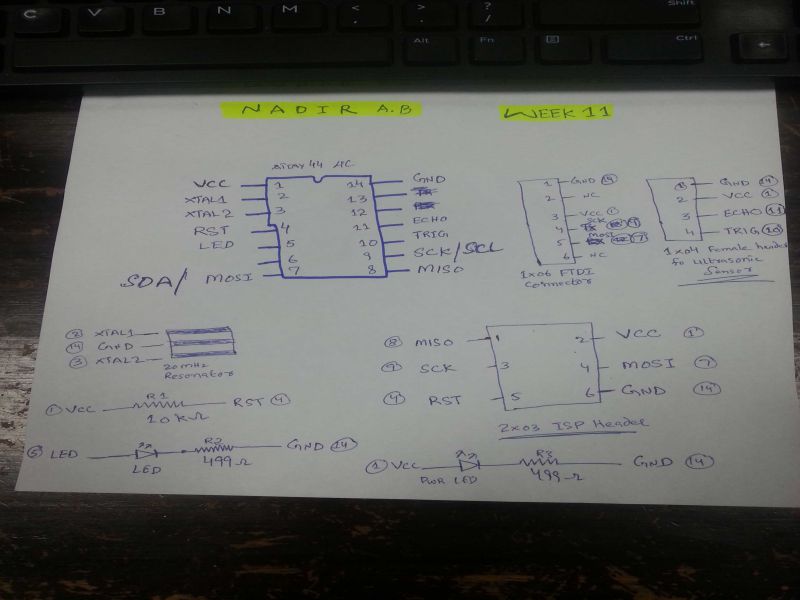 C V B N M < , > . ? / Shift
Alt Fn Ctrl
NADIR A.B WEEK 11
ATtiny 44 MC
VCC 1 14 GND
XTAL1 2 13
XTAL2 3 12
RST 4 11 ECHO
LED 5 10 TRIG
6 9 SCK/SCL
SDA/ MOSI 7 8 MISO
1 GND 14
2 NC
3 VCC 1
4 SCK 9
5 MOSI 7
6 NC
1x06 FTDI
Connector
GND 14
2 VCC 1
3 ECHO 11
4 TRIG 10
1x04 Female header
fo Ultrasonic
Sensor
2 XTAL1
14 GND
3 XTAL2
20MHz
Resonator
8 MISO 1 2 VCC 1
9 SCK 3 4 MOSI 7
4 RST 5 6 GND 14
2x03 ISP Header
1 VCC R1 RST 4
10kΩ
5 LED R2 GND 14
LED 499Ω
1 VCC R3 GND 14
PWR LED 499Ω